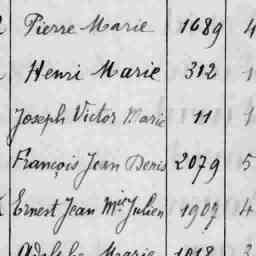 Pierre Marie 1689 4
Henri Marie 312 1
Joseph Victor Marie 11 1
François Jean Denis 2079 5
Ernest Jean Mie Julien 1907 4
Adolphe Marie 1018 3